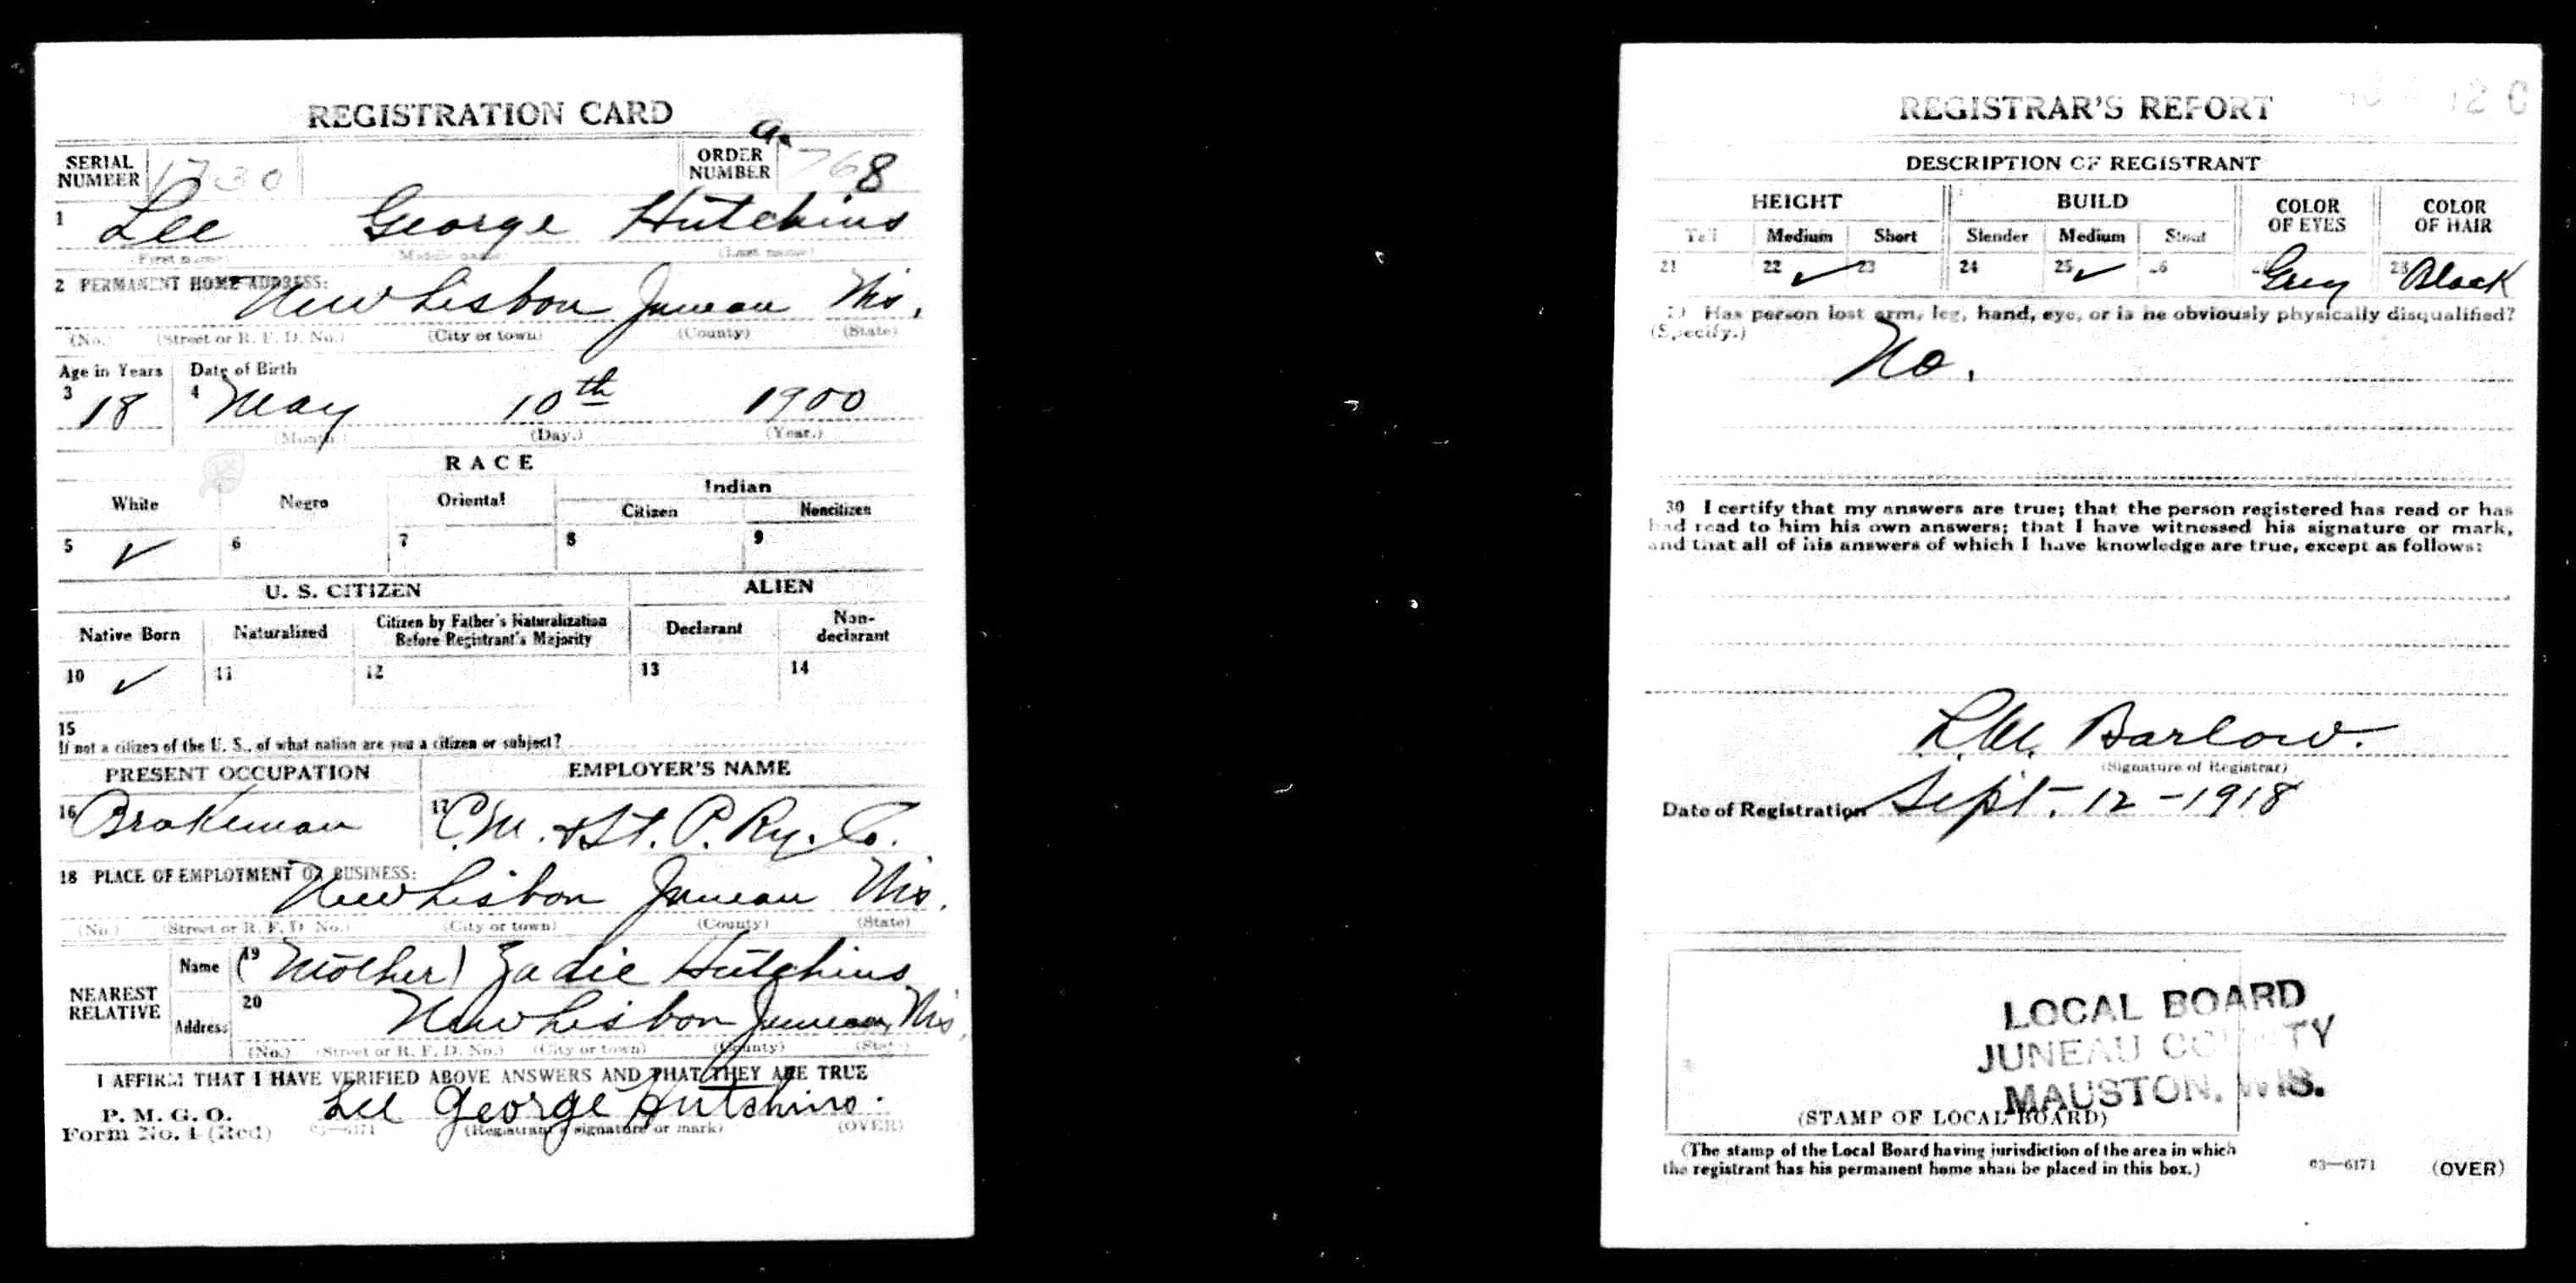 REGISTRATION CARD
SERIAL NUMBER 1730 ORDER NUMBER a. 768
1 Lee George Hutchins
(First name) (Middle name) (Last name)
2 PERMANENT HOME ADDRESS: New Lisbon Juneau Wis.
(No.) (Street or R. F. D. No.) (City or town) (County) (State)
Age in Years Date of Birth
3 18 4 May 10th 1900
(Month.) (Day.) (Year.)
RACE
White Negro Oriental Indian
Citizen Noncitizen
5 ✓ 6 7 8 9
U. S. CITIZEN ALIEN
Native Born Naturalized Citizen by Father's Naturalization Before Registrant's Majority Declarant Non-declarant
10 ✓ 11 12 13 14
15
If not a citizen of the U. S., of what nation are you a citizen or subject?
PRESENT OCCUPATION EMPLOYER'S NAME
16 Brakeman 17 C. M. & St. P. Ry. Co.
18 PLACE OF EMPLOYMENT OR BUSINESS: New Lisbon Juneau Wis.
(No.) (Street or R. F. D. No.) (City or town) (County) (State)
NEAREST RELATIVE Name 19 (Mother) Zadie Hutchins
Address 20 New Lisbon Juneau, Wis.
(No.) (Street or R. F. D. No.) (City or town) (County) (State)
I AFFIRM THAT I HAVE VERIFIED ABOVE ANSWERS AND THAT THEY ARE TRUE
P. M. G. O.
Form No. 1 (Red) 03—6171 Lee George Hutchins.
(Registrant's signature or mark) (OVER)
REGISTRAR'S REPORT
DESCRIPTION OF REGISTRANT
HEIGHT BUILD COLOR OF EYES COLOR OF HAIR
Tall Medium Short Slender Medium Stout
21 22 ✓ 23 24 25 ✓ 26 Grey 28 Black
29 Has person lost arm, leg, hand, eye, or is he obviously physically disqualified?
(Specify.)
No.
30 I certify that my answers are true; that the person registered has read or has
had read to him his own answers; that I have witnessed his signature or mark,
and that all of his answers of which I have knowledge are true, except as follows:
Barlow.
(Signature of Registrar)
Date of Registration Sept. 12 - 1918
LOCAL BOARD
JUNEAU COUNTY
MAUSTON, WIS.
(STAMP OF LOCAL BOARD)
(The stamp of the Local Board having jurisdiction of the area in which
the registrant has his permanent home shall be placed in this box.)
03—6171 (OVER)